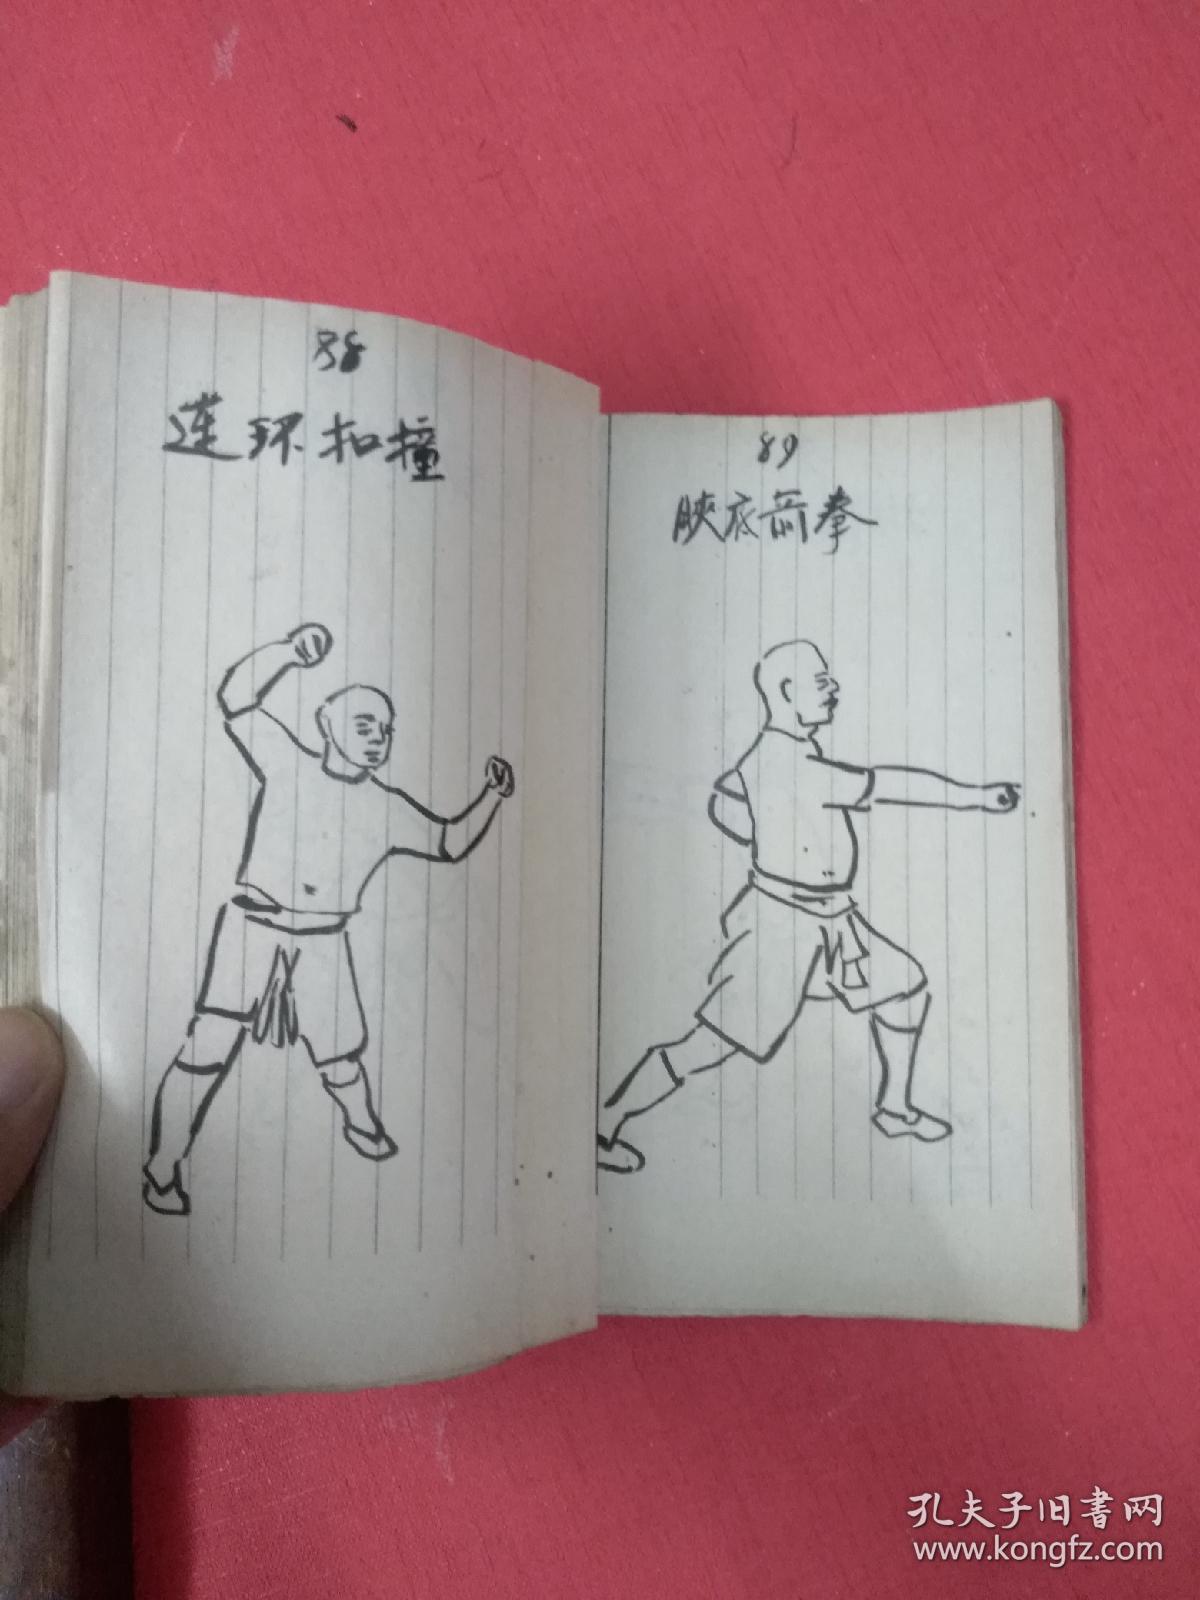 88
莲环扣撞
89
腋底前拳
孔夫子旧书网
www.kongfz.com